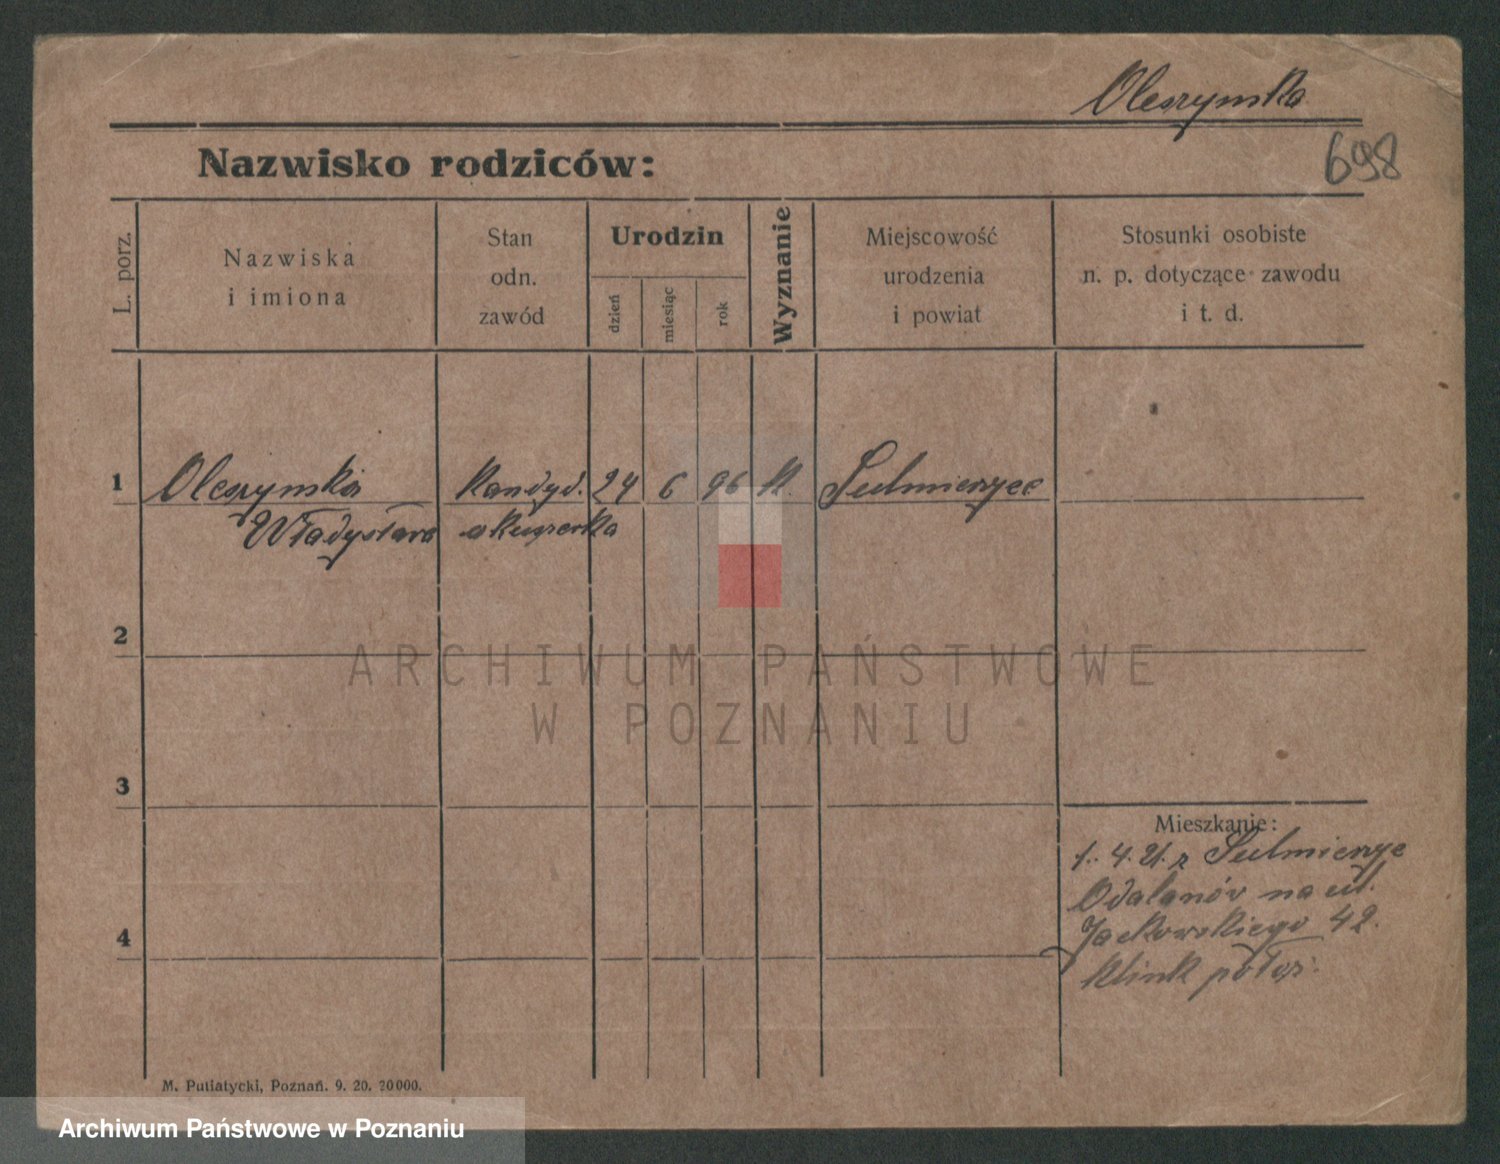 Oleszynska
698
Nazwisko rodziców:
L. porz.
Nazwiska
i imiona
Stan
odn.
zawód
Urodzin
dzień
miesiąc
rok
Wyznanie
Miejscowość
urodzenia
i powiat
Stosunki osobiste
n. p. dotyczące zawodu
i t. d.
1
Oleszynska Kandyd. 24 6 96 k. Sulmierzyce
Władysława akuszerka
2
ARCHIWUM PAŃSTWOWE
W POZNANIU
3
Mieszkanie:
1. 4. 21. z Sulmierzyc
Odalanów na ul.
Jackowskiego 42.
4
klink położ.
M. Putiatycki, Poznań. 9. 20. 20000.
Archiwum Państwowe w Poznaniu